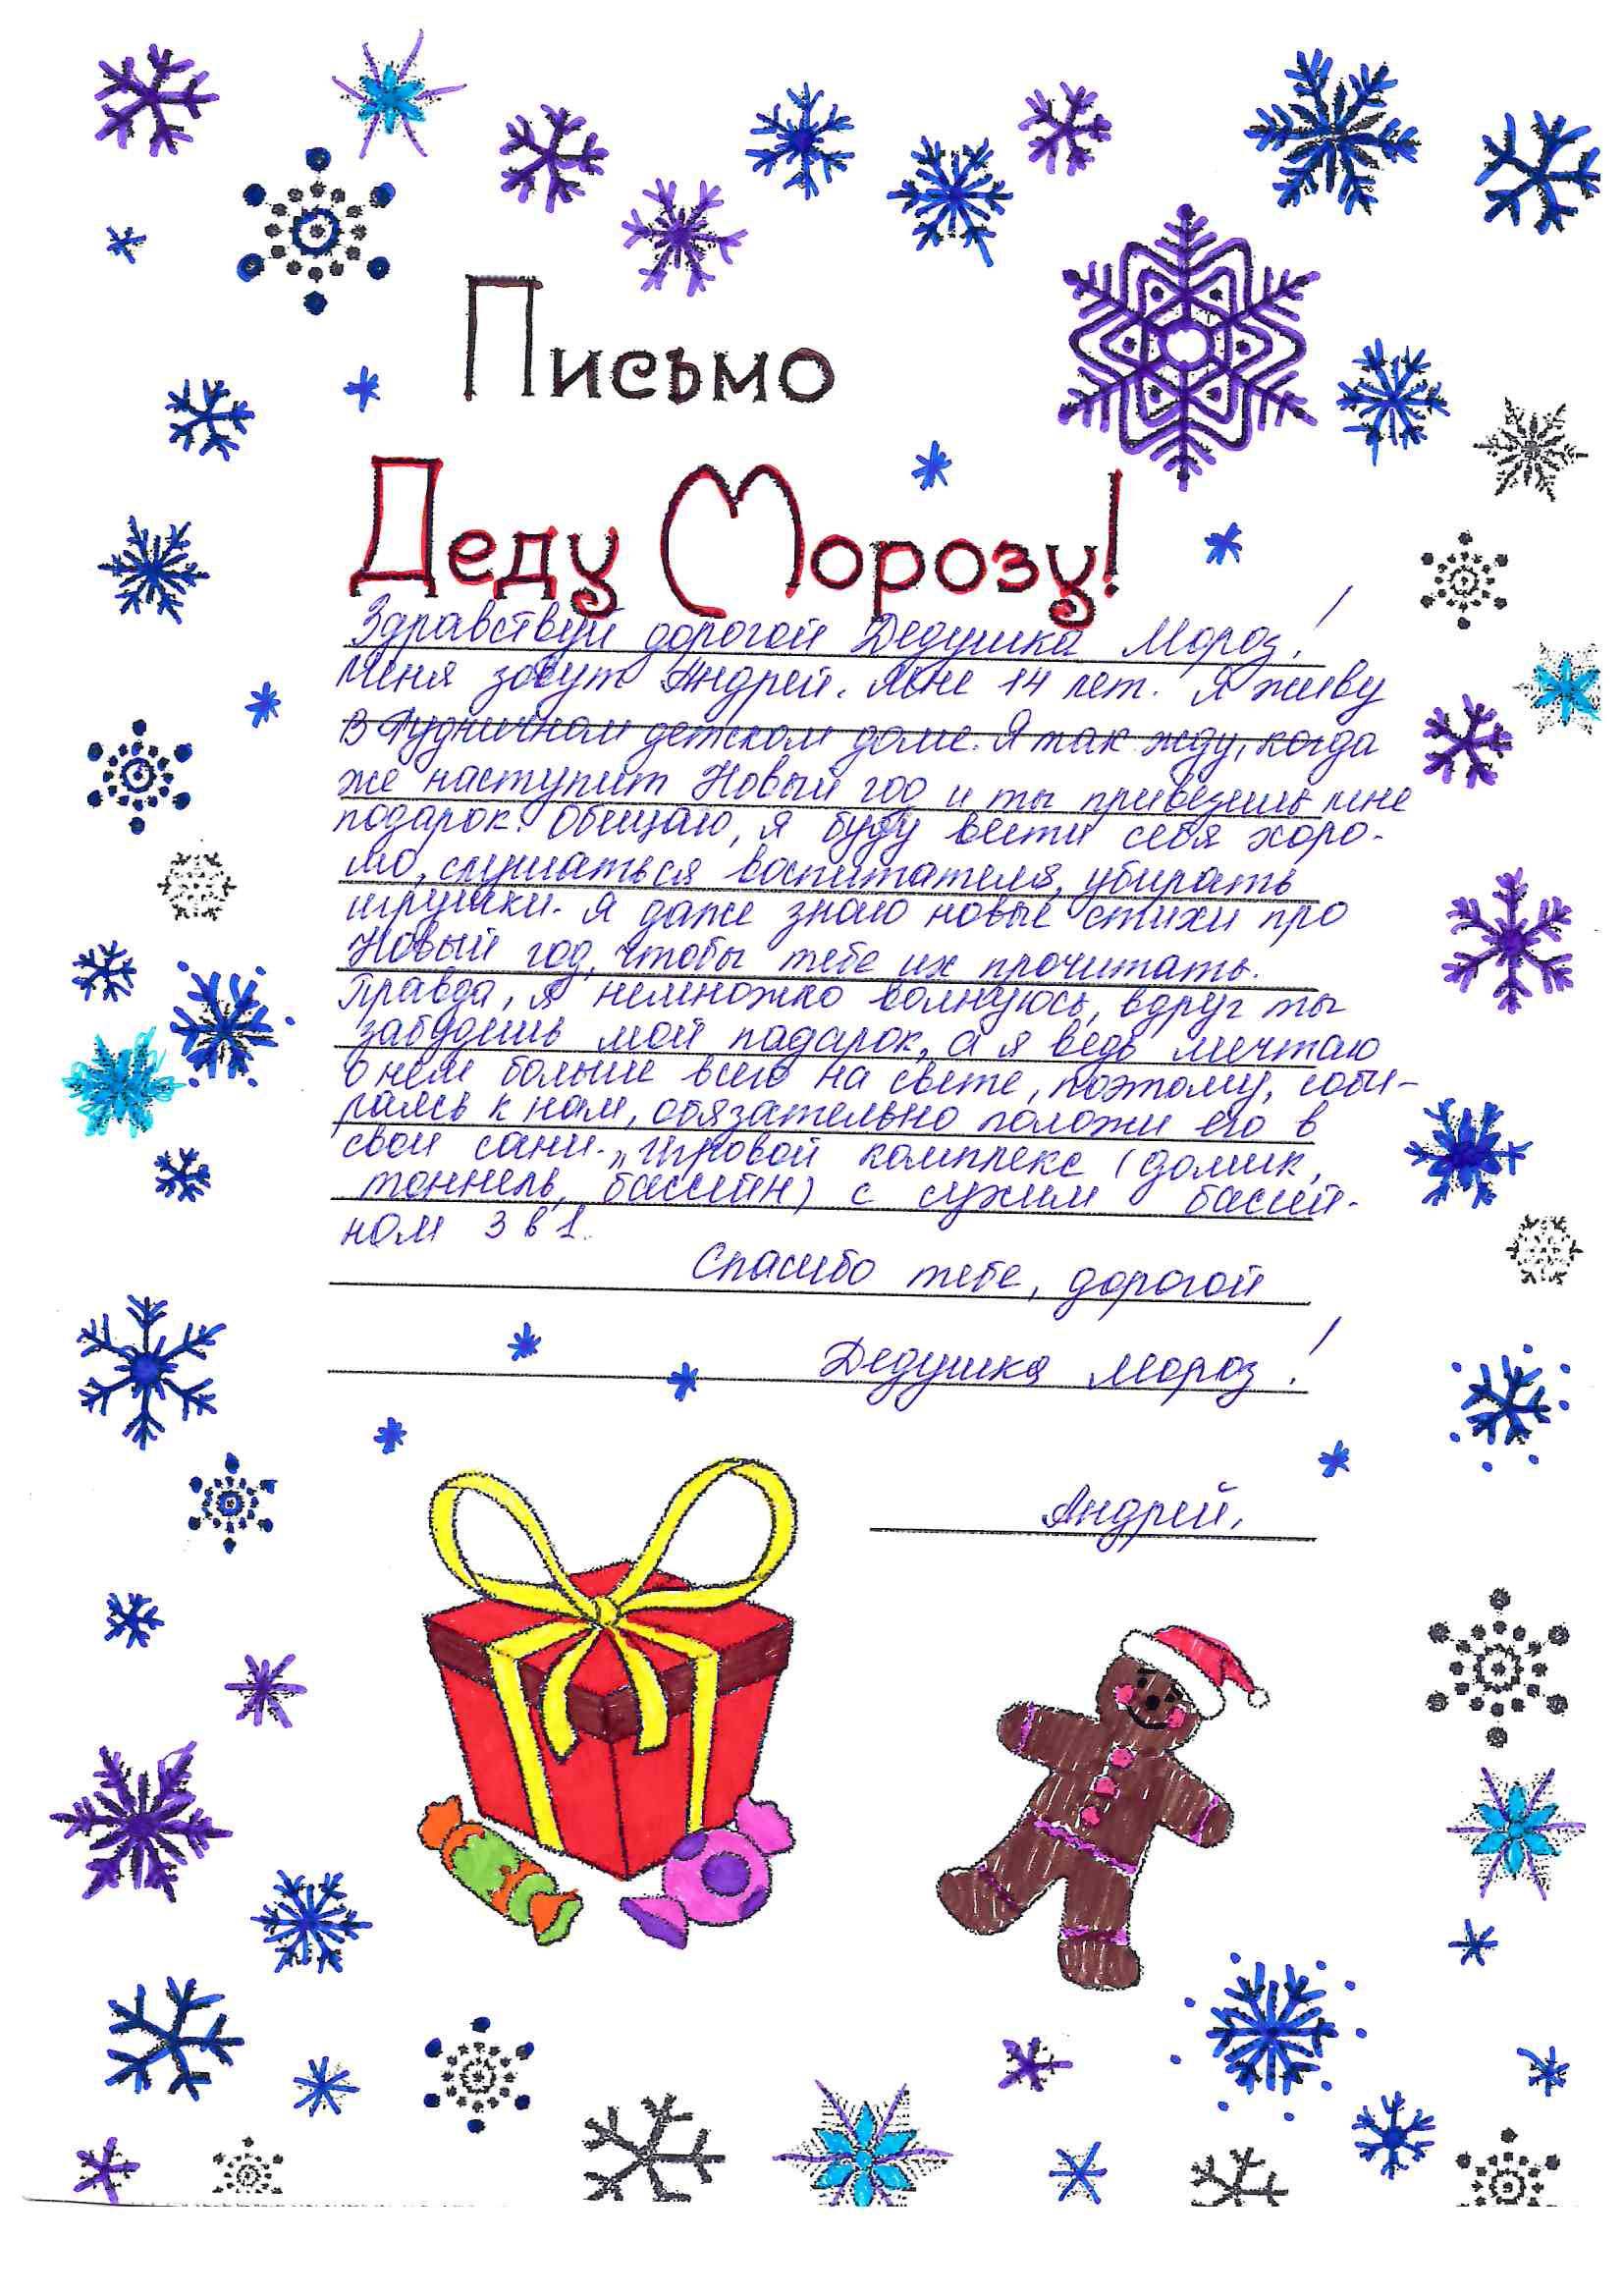 Письмо
Деду Морозу!
Здравствуй дорогой Дедушка Мороз!
Меня зовут Андрей. Мне 14 лет. Я живу
в Рудничном детском доме. Я так жду, когда
же наступит Новый год и ты привезешь мне
подарок. Обещаю, я буду вести себя хоро-
шо, слушаться воспитателя, убирать
игрушки. Я даже знаю новые стихи про
Новый год, чтобы тебе их прочитать.
Правда, я немножко волнуюсь, вдруг ты
забудешь мой подарок, а я ведь мечтаю
о нем больше всего на свете, поэтому, соби-
раясь к нам, обязательно положи его в
свои сани. „Игровой комплекс (домик,
тоннель, бассейн) с сухим бассей-
ном 3 в 1.
Спасибо тебе, дорогой
Дедушка Мороз!
Андрей.